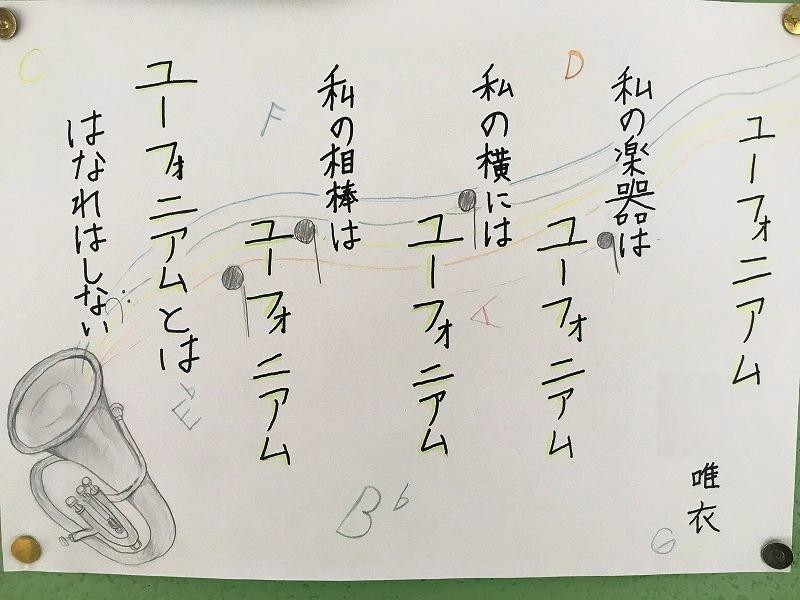 ユーフォニアム
唯衣
私の楽器は
ユーフォニアム
私の横には
ユーフォニアム
私の相棒は
ユーフォニアム
ユーフォニアムとは
はなれはしない
D
G
A
F
B♭
E♭
C